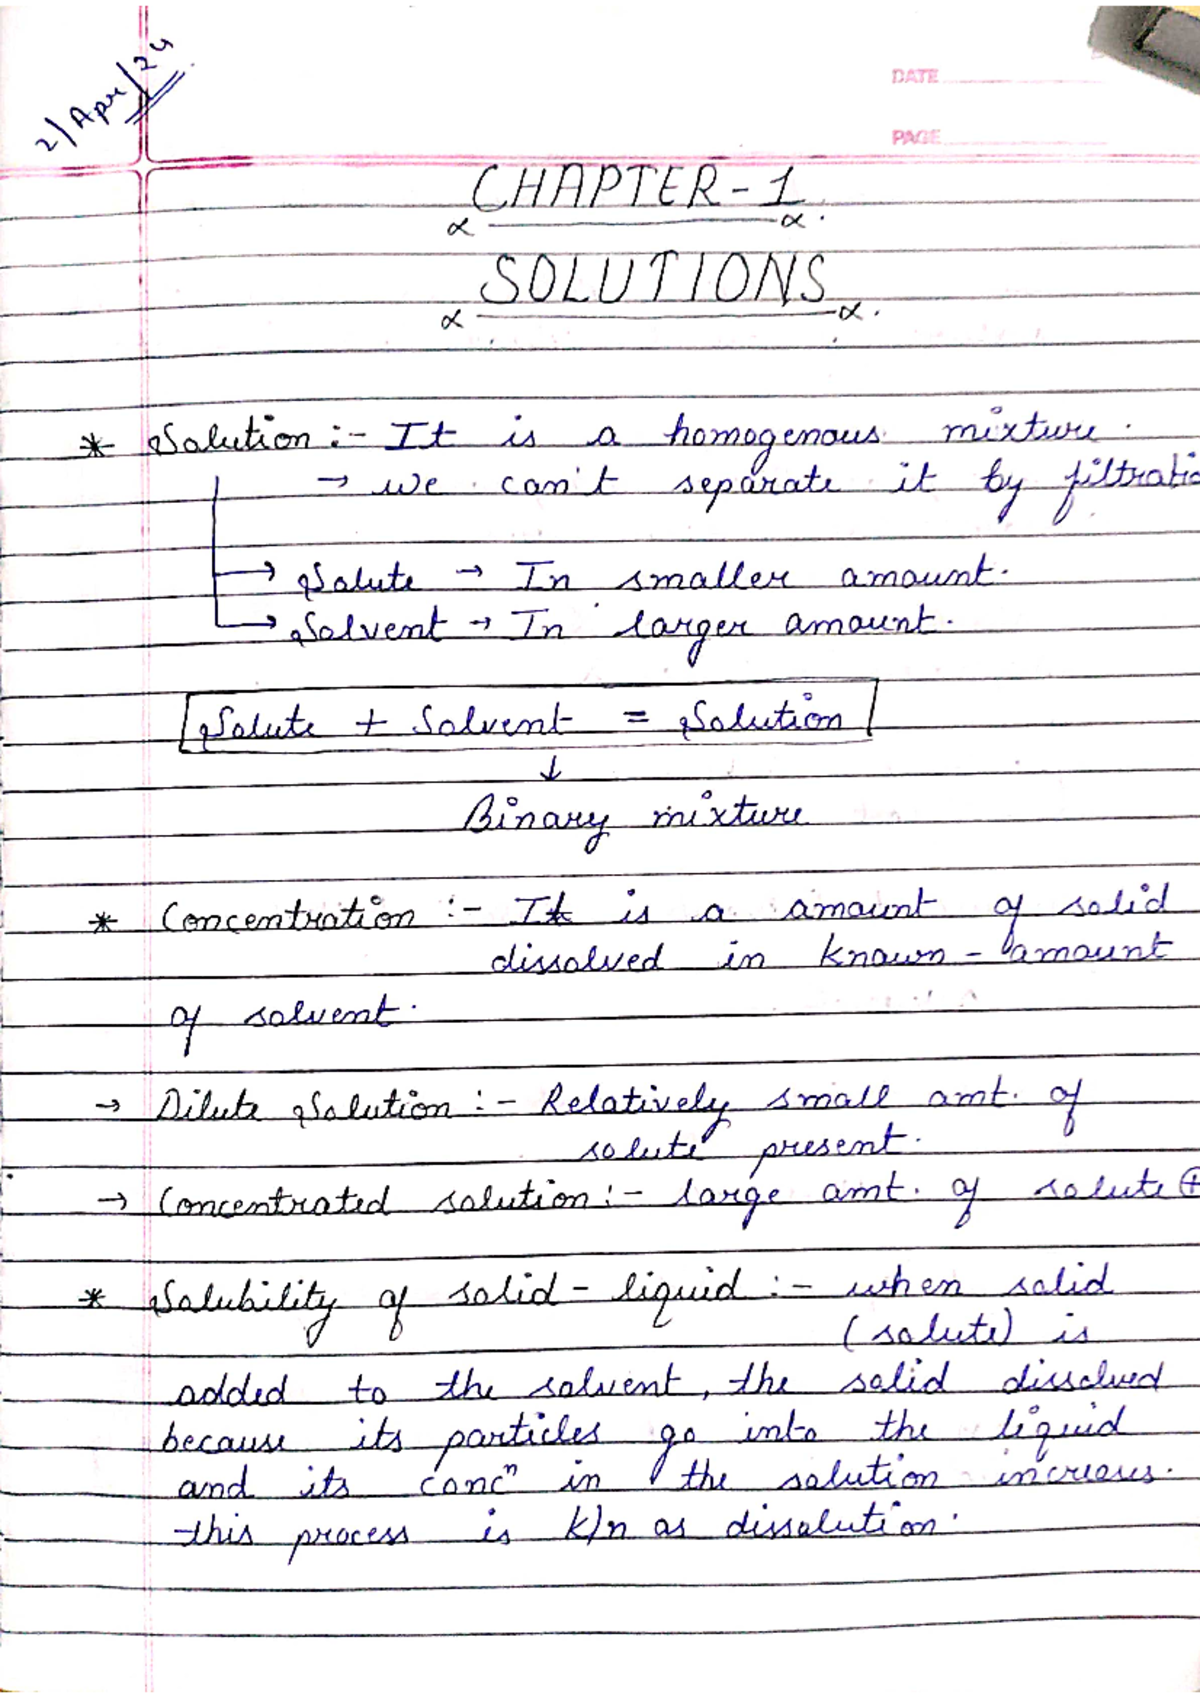 2/Apr/24
DATE
PAGE
CHAPTER-1
SOLUTIONS
* Solution :- It is a homogenous mixture.
→ we can't separate it by filtratio
→ Solute → In smaller amount.
→ Solvent → In larger amount.
Solute + Solvent = Solution
↓
Binary mixture
* Concentration :- It is a amount of solid
dissolved in known - amount
of solvent.
→ Dilute Solution :- Relatively small amt. of
solute present.
→ Concentrated solution :- large amt. of solute ⊕
* Solubility of solid - liquid :- when solid
(solute) is
added to the solvent, the solid dissolved
because its particles go into the liquid
and its concⁿ in the solution increases.
this process is k/n as dissolution.